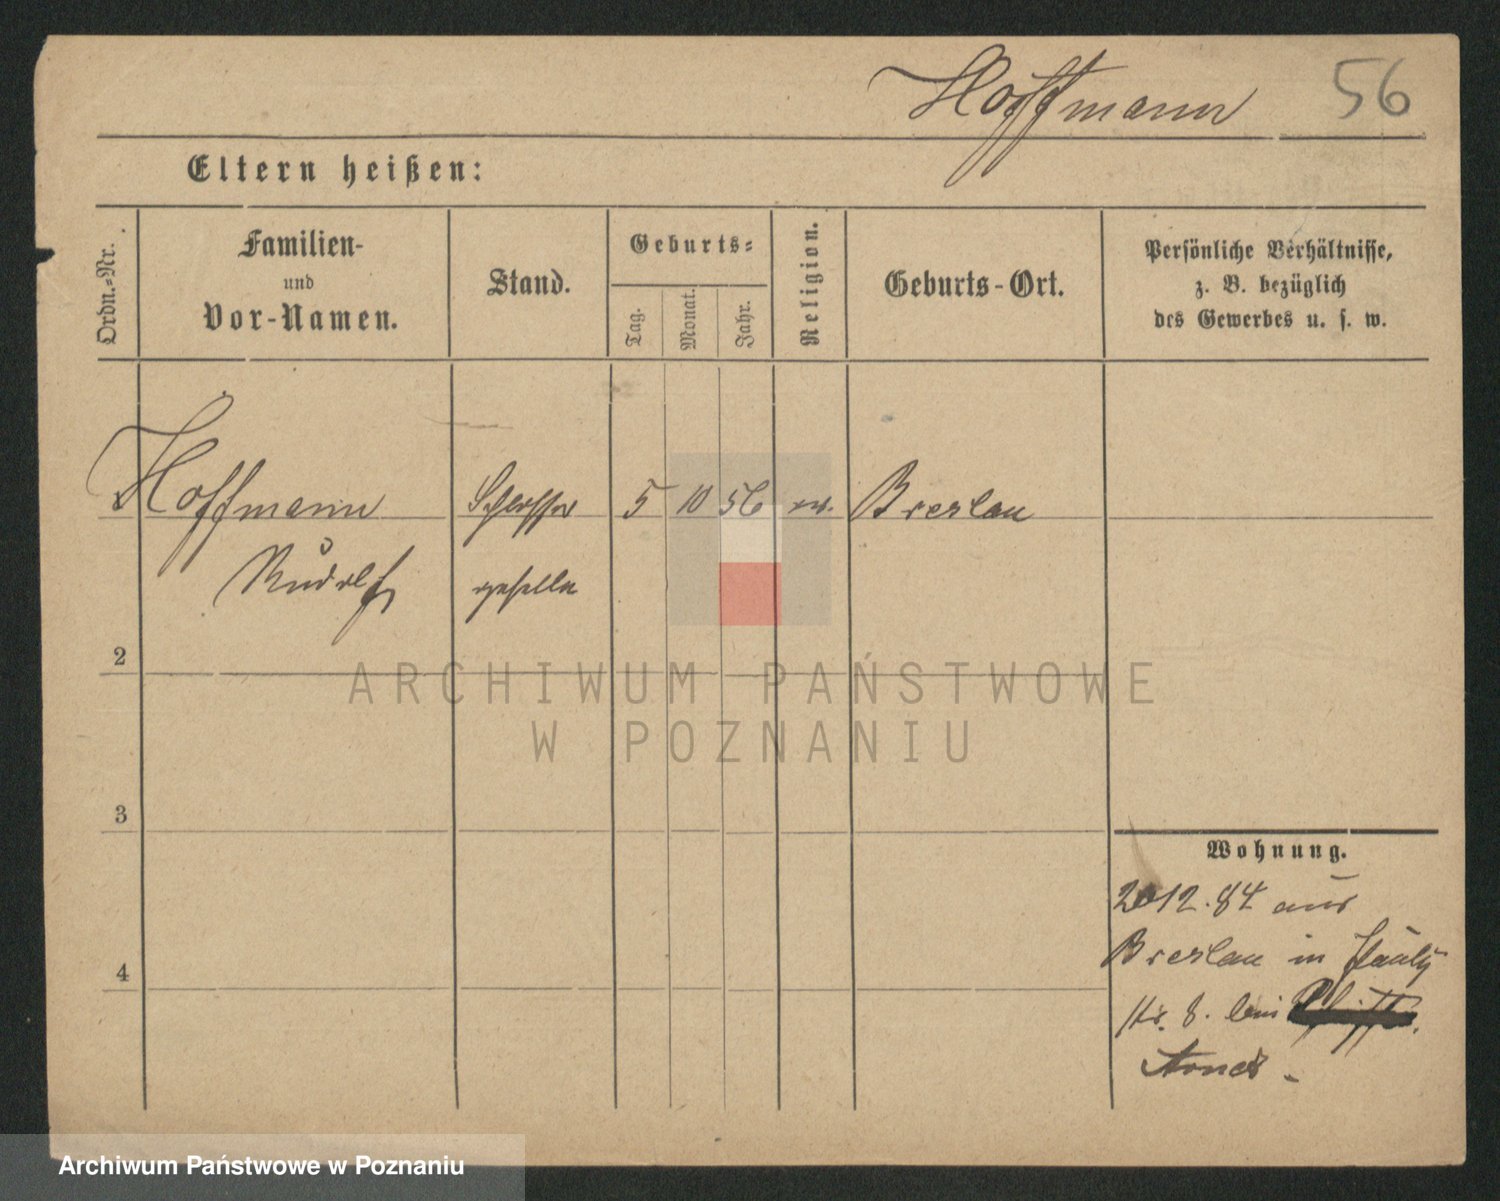 Hoffmann 56
Eltern heißen:
Ordn.-Nr.
Familien-
und
Vor-Namen.
Stand.
Geburts-
Tag.
Monat.
Jahr.
Religion.
Geburts-Ort.
Persönliche Verhältnisse,
z. B. bezüglich
des Gewerbes u. s. w.
Hoffmann Schlosser 5 10 56 ev. Breslau
Rudolf geselle
2
ARCHIWUM PAŃSTWOWE
W POZNANIU
3
Wohnung.
12.84 aus
Breslau in
4
str. 8. bei
Archiwum Państwowe w Poznaniu